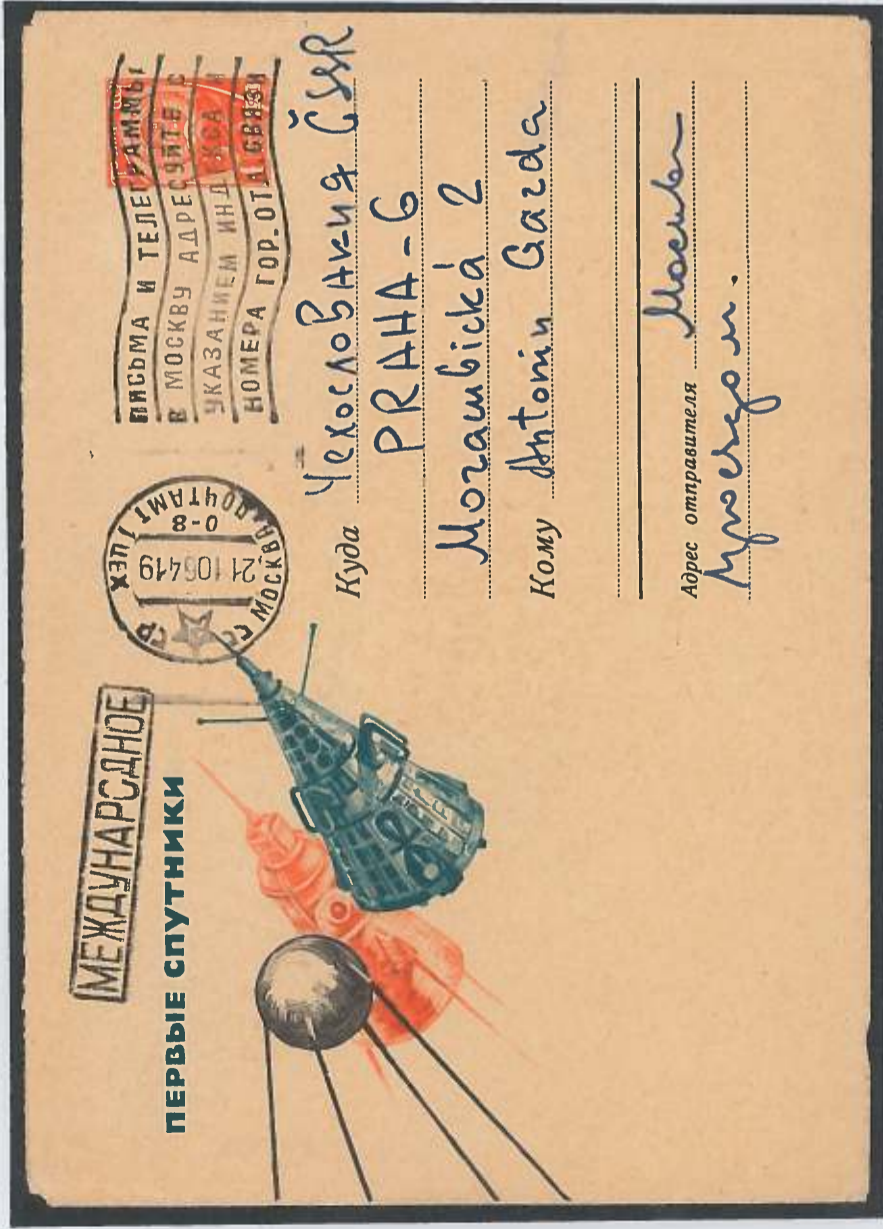 МЕЖДУНАРОДНОЕ
ПЕРВЫЕ СПУТНИКИ
СССР МОСКВА ПОЧТАМТ 1 ЦЕХ
0-8
21106419
ПИСЬМА И ТЕЛЕГРАММЫ
В МОСКВУ АДРЕСУЙТЕ С
УКАЗАНИЕМ ИНДЕКСА И
НОМЕРА ГОР.ОТД СВЯЗИ
Куда Чехословакия ČSSR
PRAHA-6
Mozambická 2
Кому Antonin Gazda
Адрес отправителя Москва